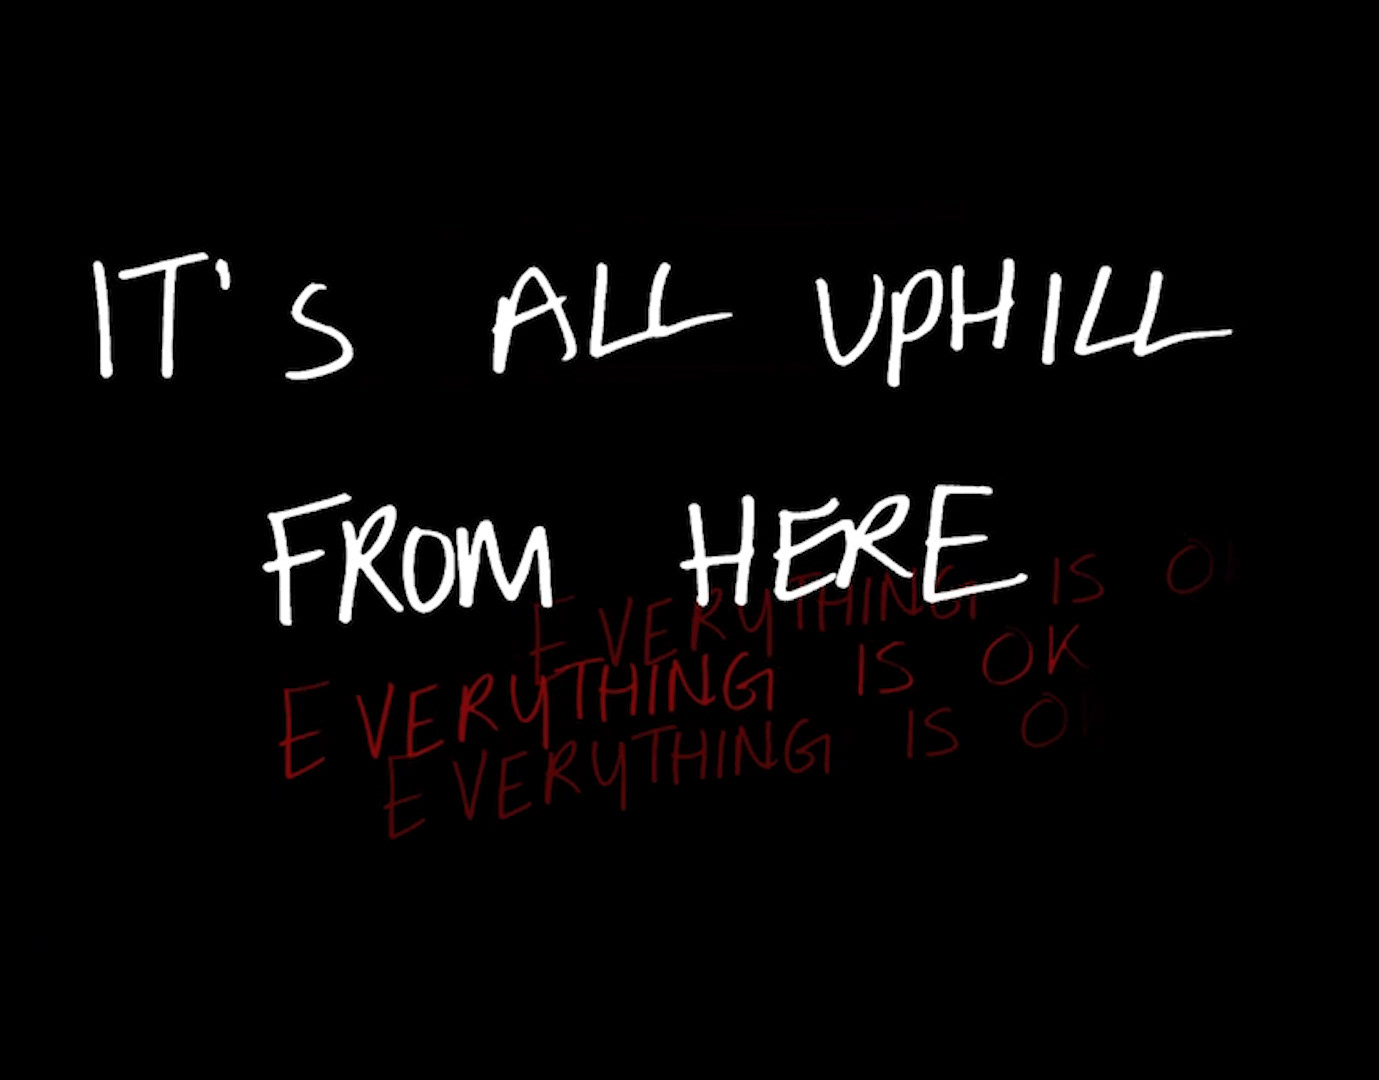 IT'S ALL UPHILL
FROM HERE
EVERYTHING IS OK
EVERYTHING IS OK
EVERYTHING IS OK